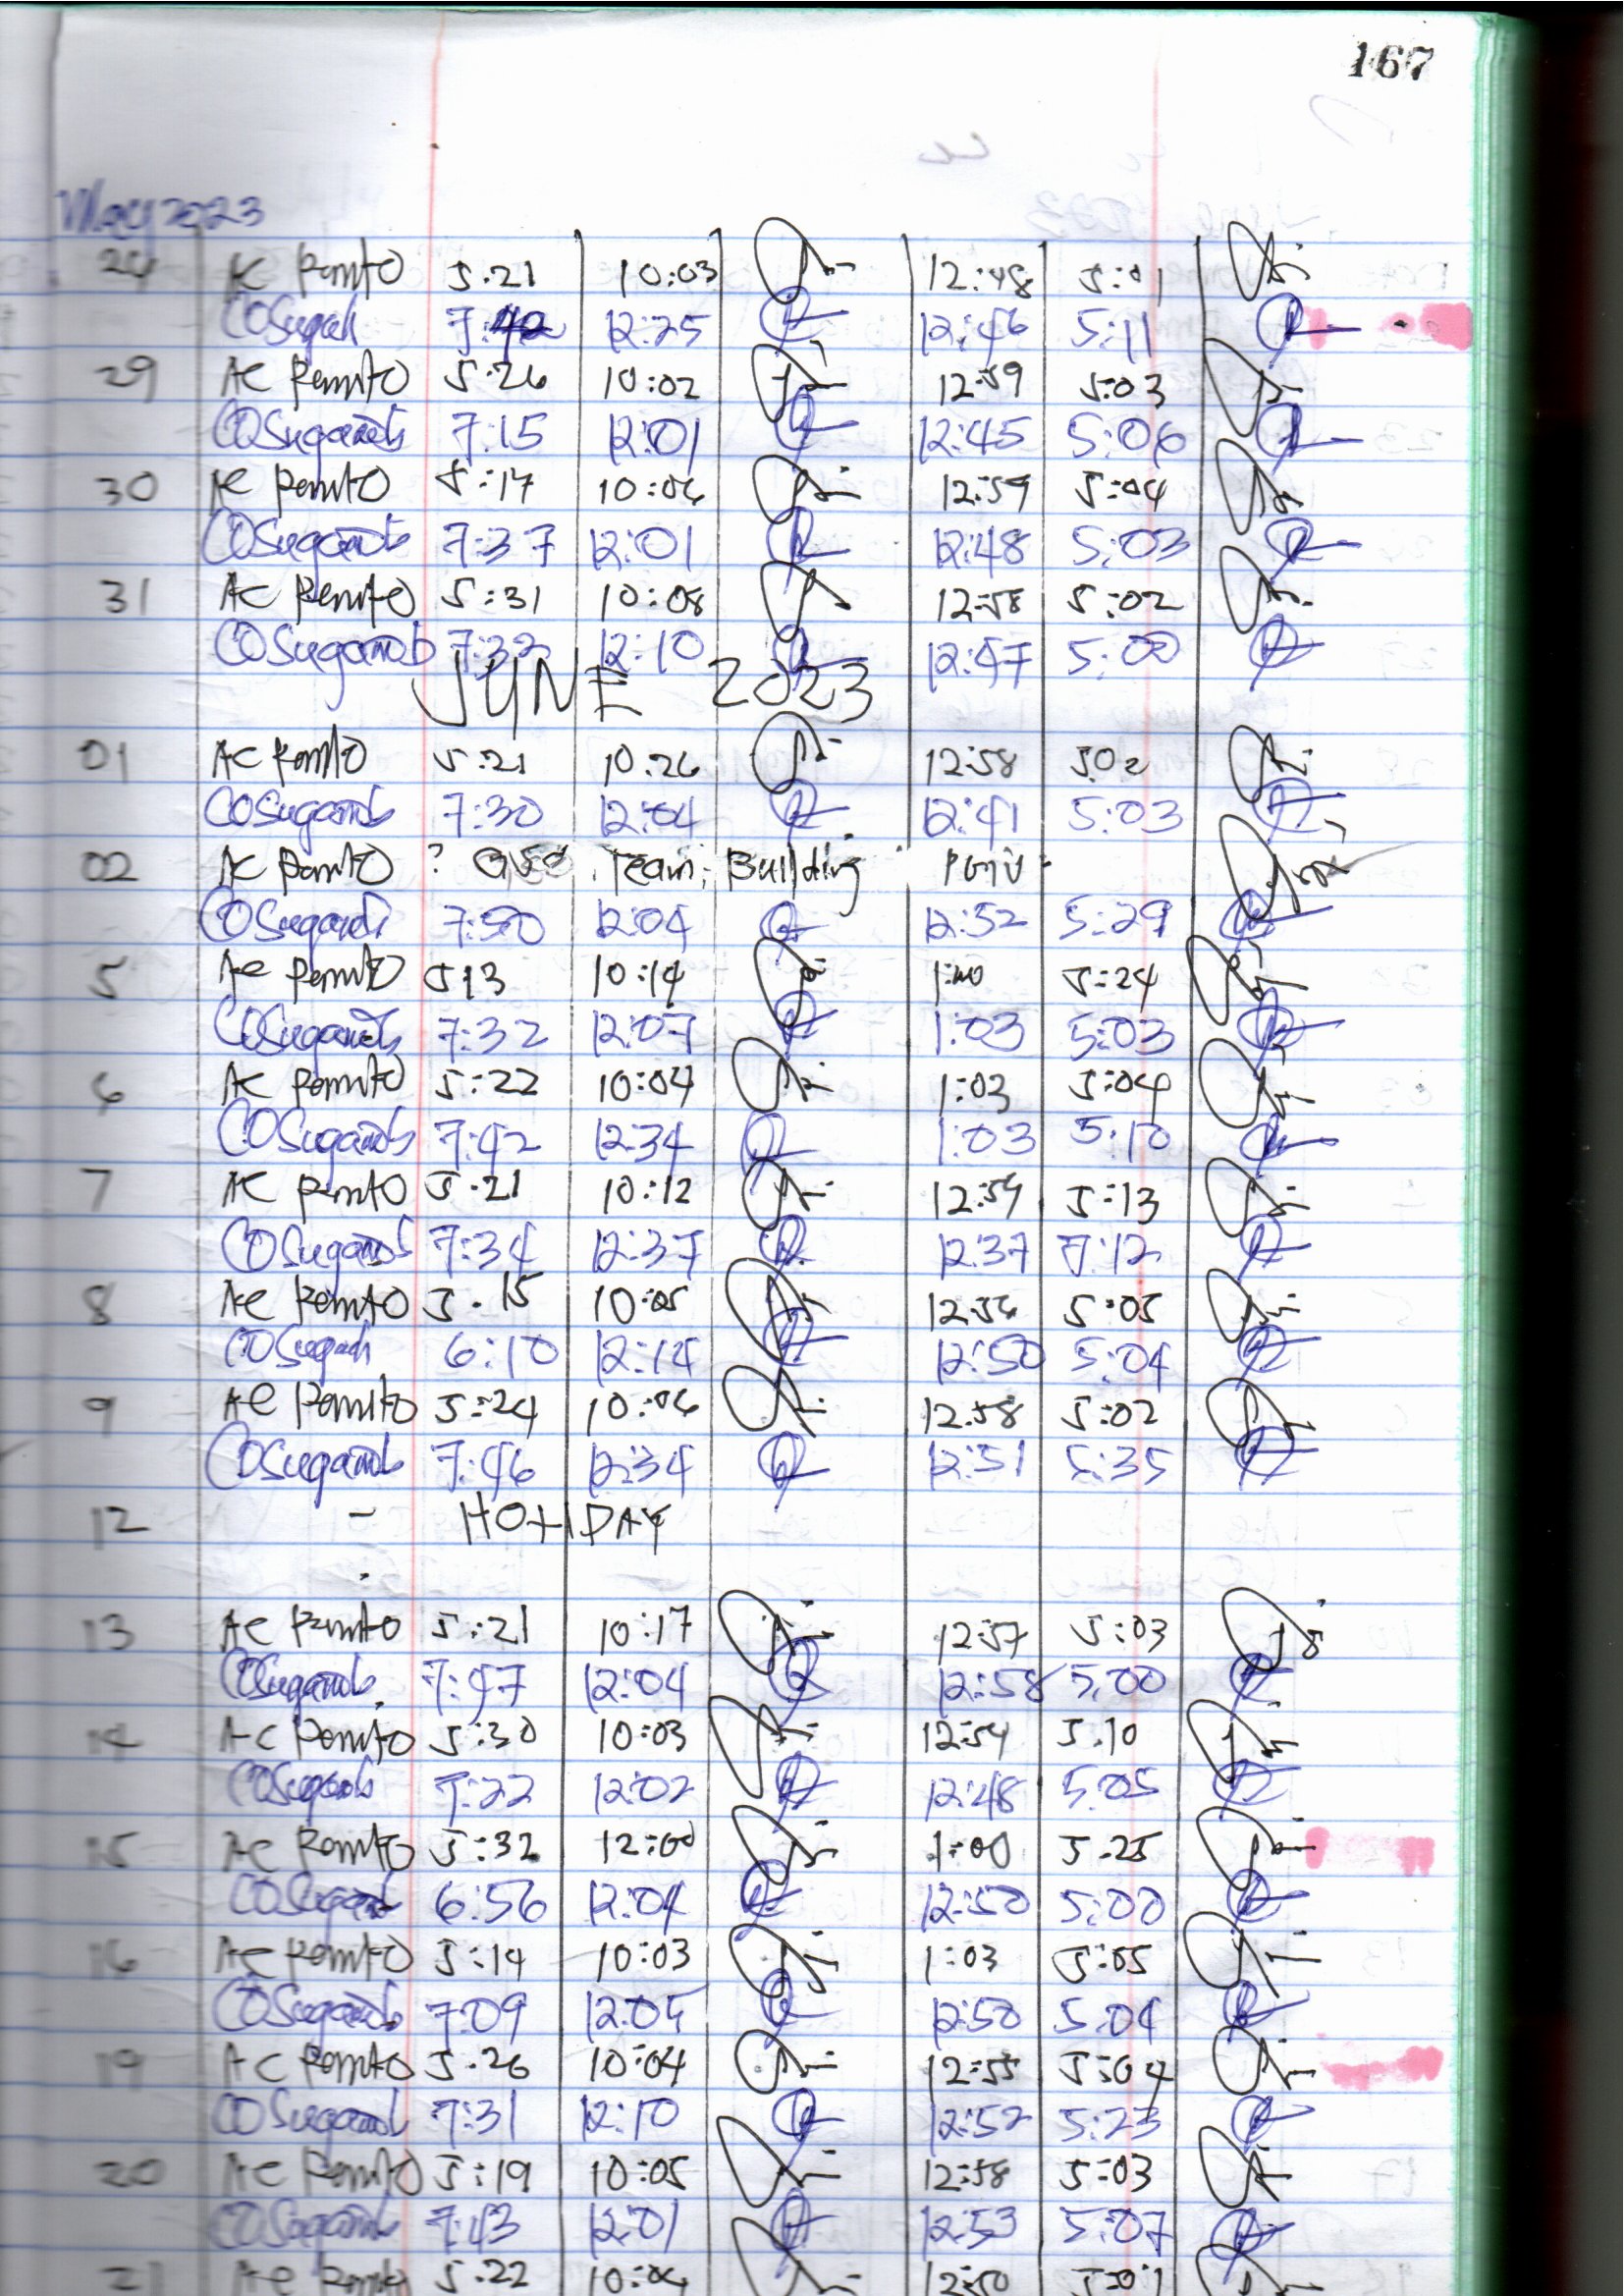 167
May 2023
24 AC Pemito 5:21 10:03 12:48 5:01
COSugan 7:42 12:25 12:46 5:11
29 AC Pemito 5:26 10:02 12:59 5:03
COSuganob 7:15 12:01 12:45 5:06
30 AC Pemito 5:17 10:06 12:59 5:04
COSuganob 7:37 12:01 12:48 5:03
31 AC Pemito 5:31 10:08 12:58 5:02
COSuganob 7:32 12:10 12:47 5:00
JUNE 2023
01 AC Pemito 5:21 10:26 12:58 5:02
COSuganob 7:30 12:04 12:41 5:03
02 AC Pemito ? Team Building
COSuganob 7:50 12:04 12:52 5:29
5 AC Pemito 5:13 10:14 1:00 5:24
COSuganob 7:32 12:07 1:03 5:03
6 AC Pemito 5:22 10:04 1:03 5:04
COSuganob 7:42 12:34 1:03 5:10
7 AC Pemito 5:21 10:12 12:59 5:13
COSuganob 7:34 12:37 12:37 7:12
8 AC Pemito 5:15 10:05 12:56 5:05
COSugan 6:10 12:14 12:50 5:04
9 AC Pemito 5:24 10:06 12:58 5:02
COSuganob 7:46 12:34 12:51 5:35
12 - HOLIDAY
13 AC Pemito 5:21 10:17 12:57 5:03
COSuganob 7:47 12:04 12:58 5:00
14 AC Pemito 5:30 10:03 12:54 5:10
COSuganob 7:22 12:02 12:48 5:05
15 AC Pemito 5:32 12:00 1:00 5:25
COSuganob 6:56 12:04 12:50 5:00
16 AC Pemito 5:14 10:03 1:03 5:05
COSuganob 7:09 12:05 12:50 5:04
19 AC Pemito 5:26 10:04 12:55 5:04
COSuganob 7:31 12:10 12:52 5:23
20 AC Pemito 5:19 10:05 12:58 5:03
COSuganob 7:43 12:01 12:53 5:07
21 AC Pemito 5:22 10:06 12:50 5:01